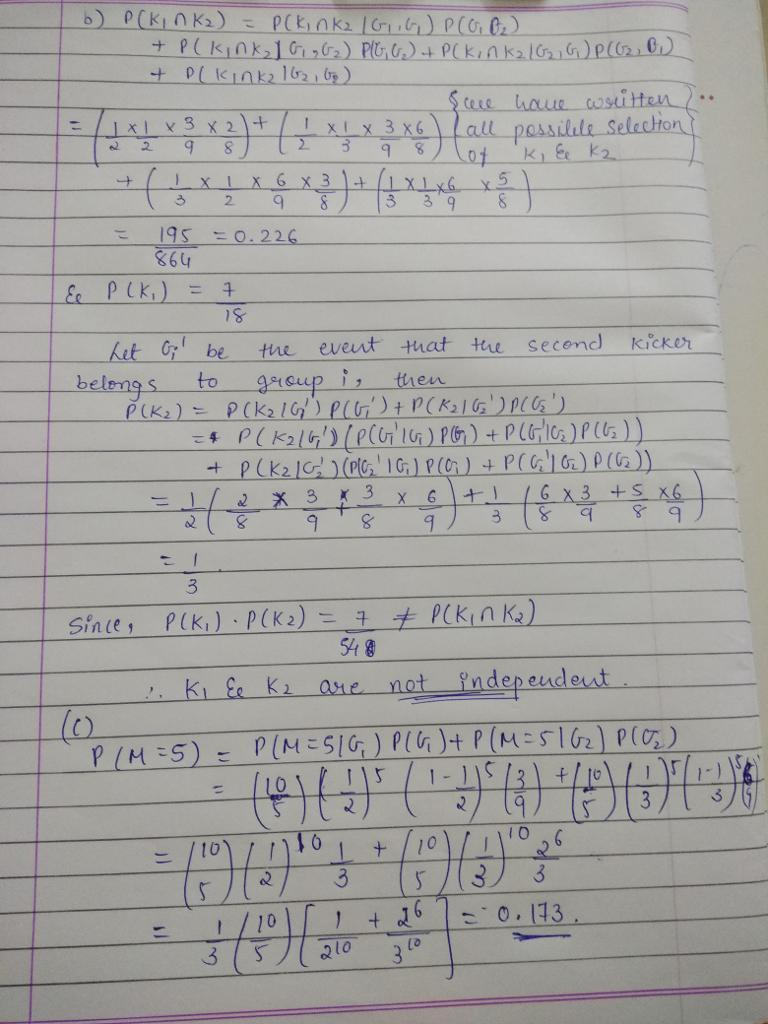 b) P(K1∩K2) = P(K1∩K2 | G1, G1) P(G1 G2)
+ P(K1∩K2 | G1, G2) P(G1G2) + P(K1∩K2 | G2, G1) P(G2, G1)
+ P(K1∩K2 | G2, G2)
= (1/2 × 1/2 × 3/9 × 2/8) + (1/2 × 1/3 × 3/9 × 6/8) {we have written all possible selection of K1 & K2}
+ (1/3 × 1/2 × 6/9 × 3/8) + (1/3 × 1/3 × 6/9 × 5/8)
= 195/864 = 0.226
& P(K1) = 7/18
Let Gi' be the event that the second kicker
belongs to group i, then
P(K2) = P(K2|G1') P(G1') + P(K2|G2') P(G2')
= P(K2|G1') (P(G1'|G1) P(G1) + P(G1'|G2) P(G2))
+ P(K2|G2') (P(G2'|G1) P(G1) + P(G2'|G2) P(G2))
= 1/2 (2/8 × 3/9 + 3/8 × 6/9) + 1/3 (6/8 × 3/9 + 5/8 × 6/9)
= 1/3.
Since, P(K1) . P(K2) = 7/54 ≠ P(K1∩K2)
∴ K1 & K2 are not independent.
(c)
P(M=5) = P(M=5|G1) P(G1) + P(M=5|G2) P(G2)
= (10 5) (1/2)^5 (1-1/2)^5 (3/9) + (10 5) (1/3)^5 (1-1/3)^5
= (10 5) (1/2)^10 1/3 + (10 5) (1/3)^10 2^6/3
= 1/3 (10 5) [1/2^10 + 2^6/3^10] = 0.173.